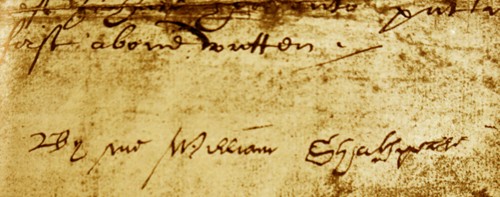 put
first above written .
By me William Shakspeare